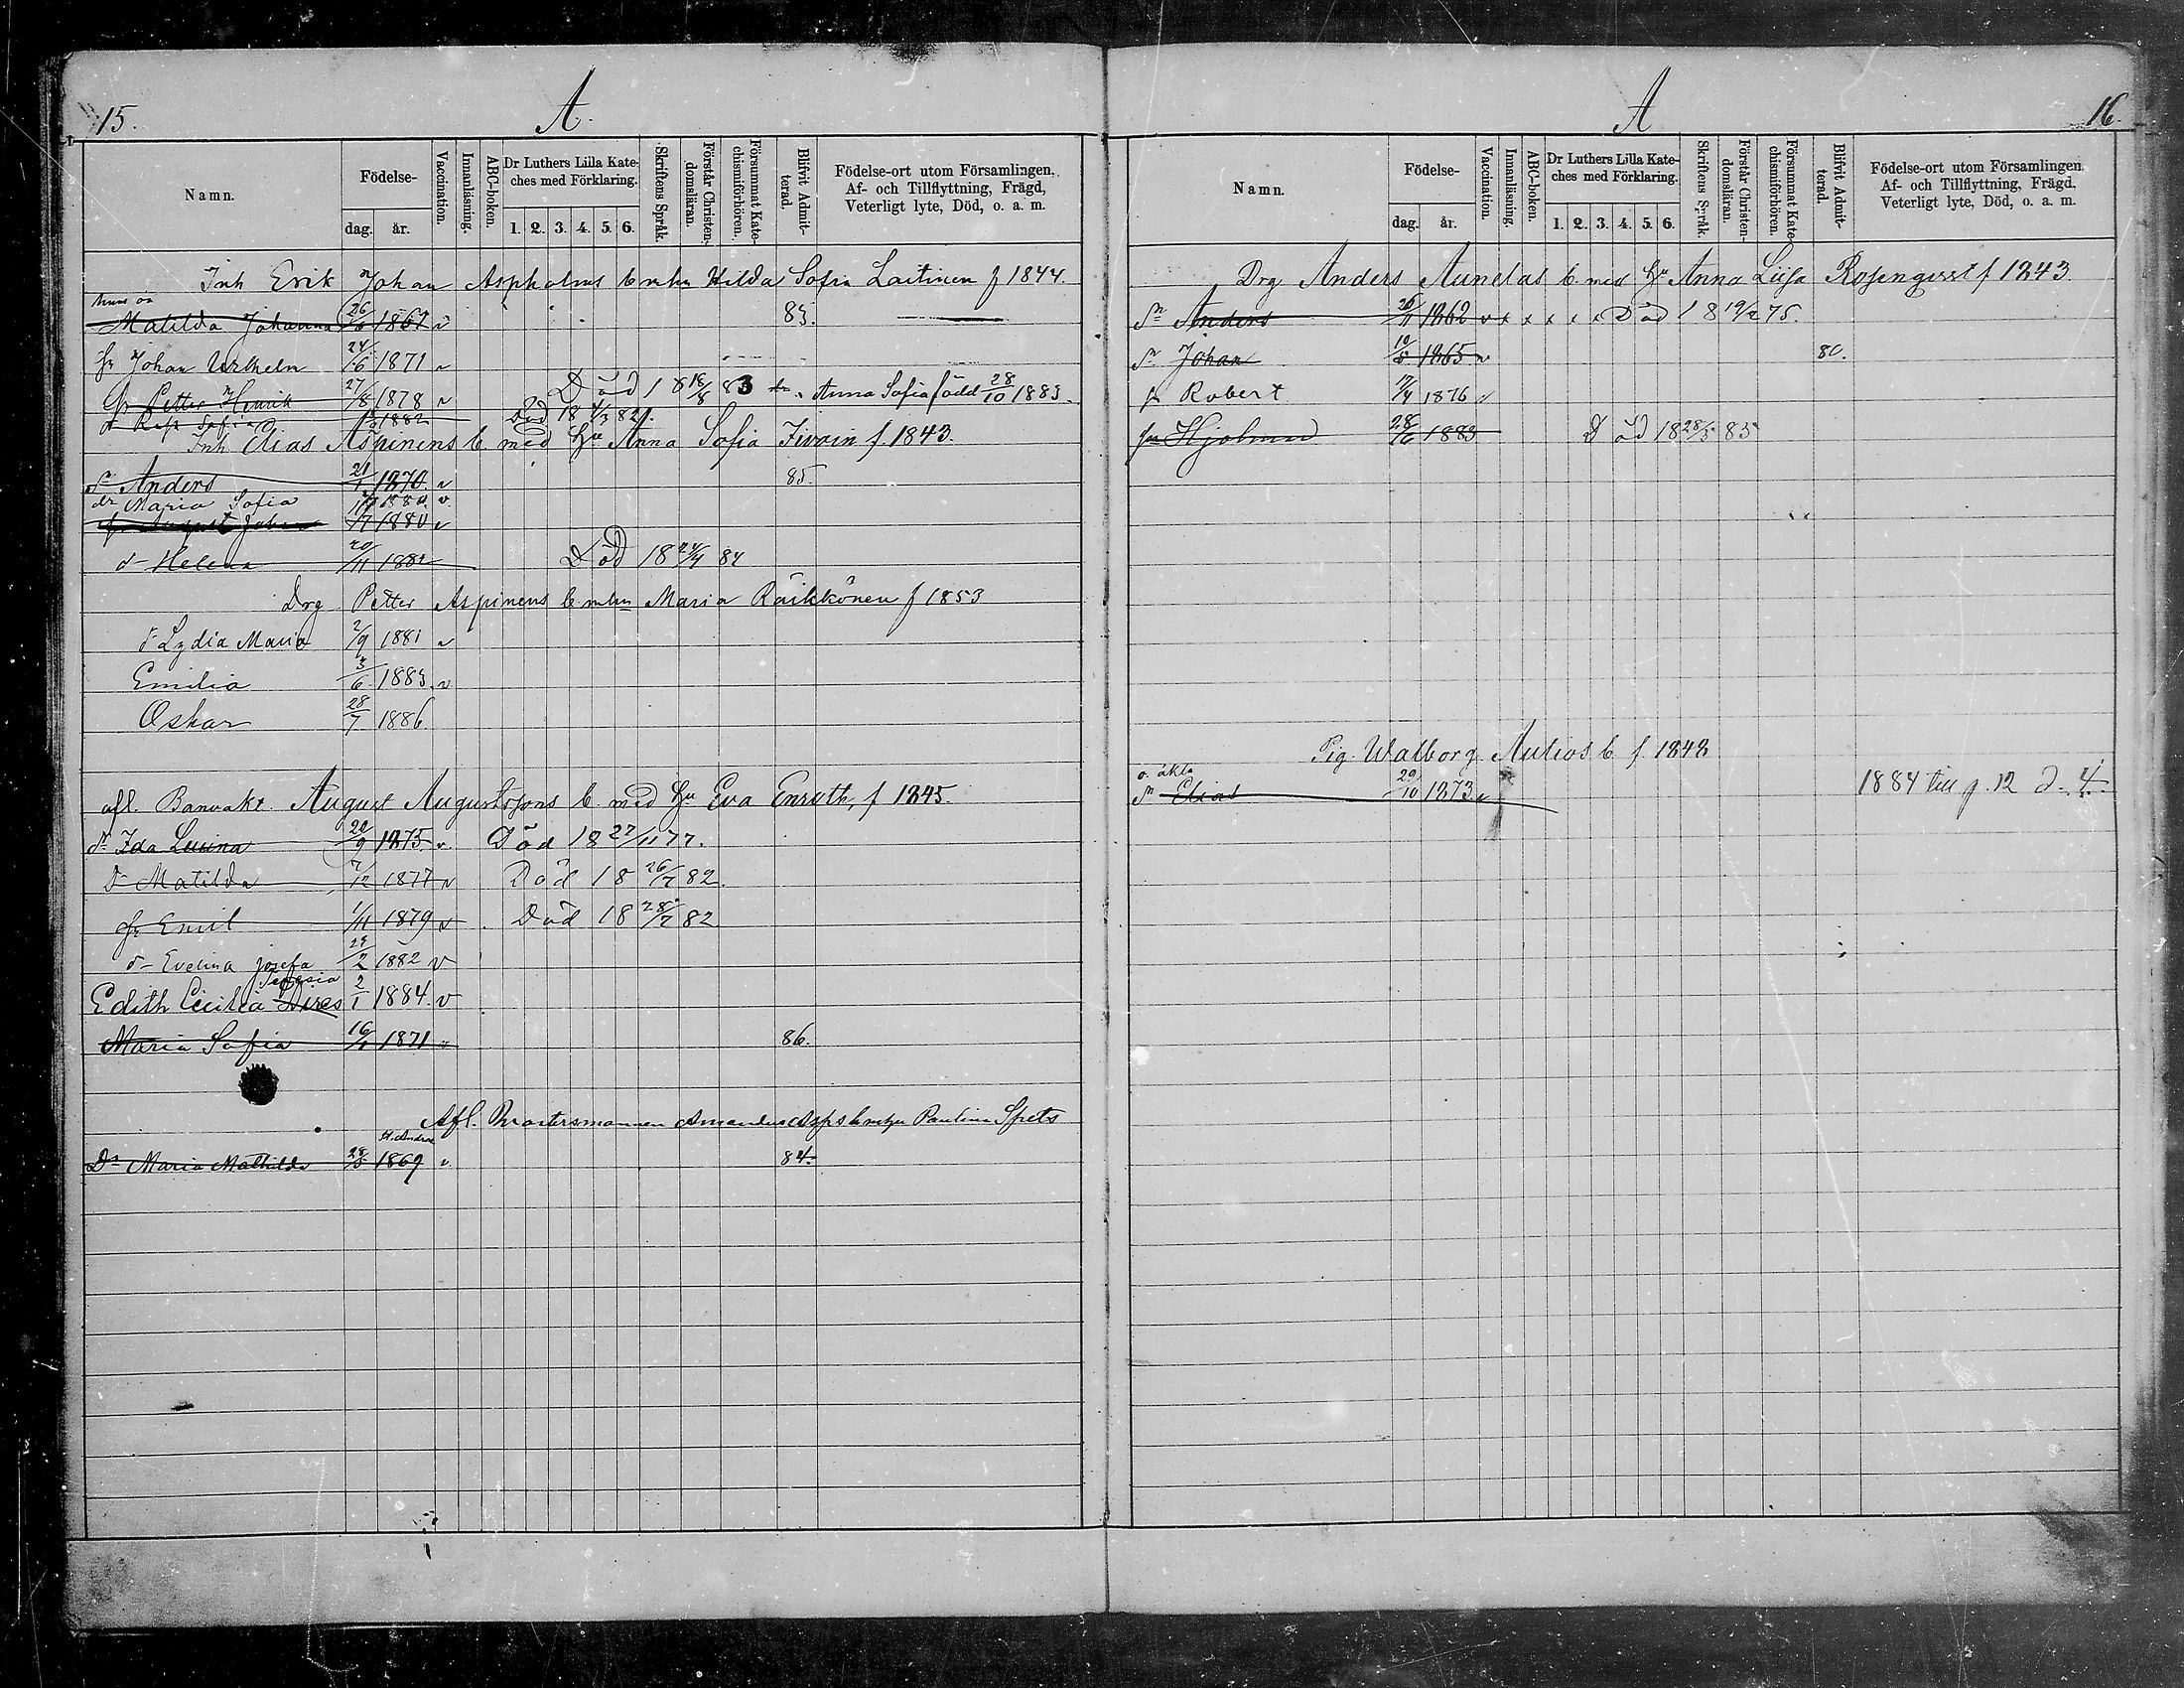 15.
A.
Namn.
Födelse-
dag. år.
Vaccination.
Innanläsning.
ABC-boken.
Dr Luthers Lilla Kate-
ches med Förklaring.
1. 2. 3. 4. 5. 6.
Skriftens Språk.
Förstår Christen-
domsläran.
Försummat Kate-
chismiförhören.
Blifvit Admit-
terad.
Födelse-ort utom Församlingen.
Af- och Tillflyttning, Frägd,
Veterligt lyte, Död, o. a. m.
Inh Erik Johan Aspholms b mhu Hilda Sofia Laitinen f 1844.
Matilda Johanna 1867 v 83.
Johan Wilhelm 24/6 1871 v
Petter Henrik 27/8 1878 v Död 18 18/8 83 Anna Sofia född 28/10 1883
Sofia 1882 Död 18 1/3 82.
Inh Elias Aspinens b. med Hu Anna Sofia f. 1843.
Sn Anders 21/1 1870 v 85.
dr Maria Sofia 1880. v.
August Johan 1880 v
dr Helena 20/11 1882 Död 18 24/4 84
Drg Petter Aspinens b mhu Maria Räikkönen f 1853
dr Lydia Maria 2/9 1881 v
Emilia 3/6 1883. v
Oskar 28/7 1886
afl. Banvakt. August Augustssons b. med Hu Eva Enroth, f 1845.
dr Ida 20/9 1875. v Död 18 27/11 77.
Dr Matilda 7/12 1877 v Död 18 26/7 82.
Emil 1/11 1879 v Död 18 28/7 82
dr Evelina Josefa 29/2 1882 v
Edith Cecilia 2/1 1884. v
Maria Sofia 1871 v 86.
Afl. Amandus Asps b mhu Paulina Spets
St. Andree
Dr Maria Mathilda 1869 v. 84.
A
16.
Namn.
Födelse-
dag. år.
Vaccination.
Innanläsning.
ABC-boken.
Dr Luthers Lilla Kate-
ches med Förklaring.
1. 2. 3. 4. 5. 6.
Skriftens Språk.
Förstår Christen-
domsläran.
Försummat Kate-
chismiförhören.
Blifvit Admit-
terad.
Födelse-ort utom Församlingen
Af- och Tillflyttning, Frägd,
Veterligt lyte, Död, o. a. m.
Drg Anders Aunelas b. med Hu Anna Liisa Rosenqvist f 1843.
Sn Anders 26/11 1862 v x x x x x Död 18 19/2 75.
Sn Johan 10/5 1865 v 80.
Robert 17/4 1876 v
Hjalmar 28/6 1883 Död 18 28/5 85
Pig. Walborg Aulios b f. 1848
o. äkta
Sn Elias 29/10 1873. v 1884 till p. 12 d. 4